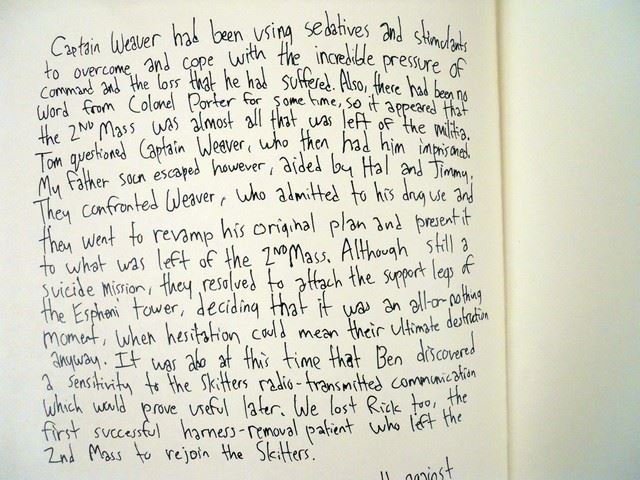 Captain Weaver had been using sedatives and stimulants
to overcome and cope with the incredible pressure of
command and the loss that he had suffered. Also, there had been no
word from Colonel Porter for some time, so it appeared that
the 2ND Mass was almost all that was left of the militia.
Tom questioned Captain Weaver, who then had him imprisoned.
My father soon escaped however, aided by Hal and Jimmy.
They confronted Weaver, who admitted to his drug use and
they went to revamp his original plan and present it
to what was left of the 2ND Mass. Although still a
suicide mission, they resolved to attach the support legs of
the Espheni tower, deciding that it was an all-or-nothing
moment, when hesitation could mean their ultimate destruction
anyway. It was also at this time that Ben discovered
a sensitivity to the Skitters radio-transmitted communication
which would prove useful later. We lost Rick too, the
first successful harness-removal patient who left the
2nd Mass to rejoin the Skitters.
against